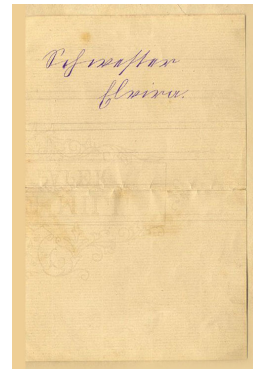 Schwester
Elvira.